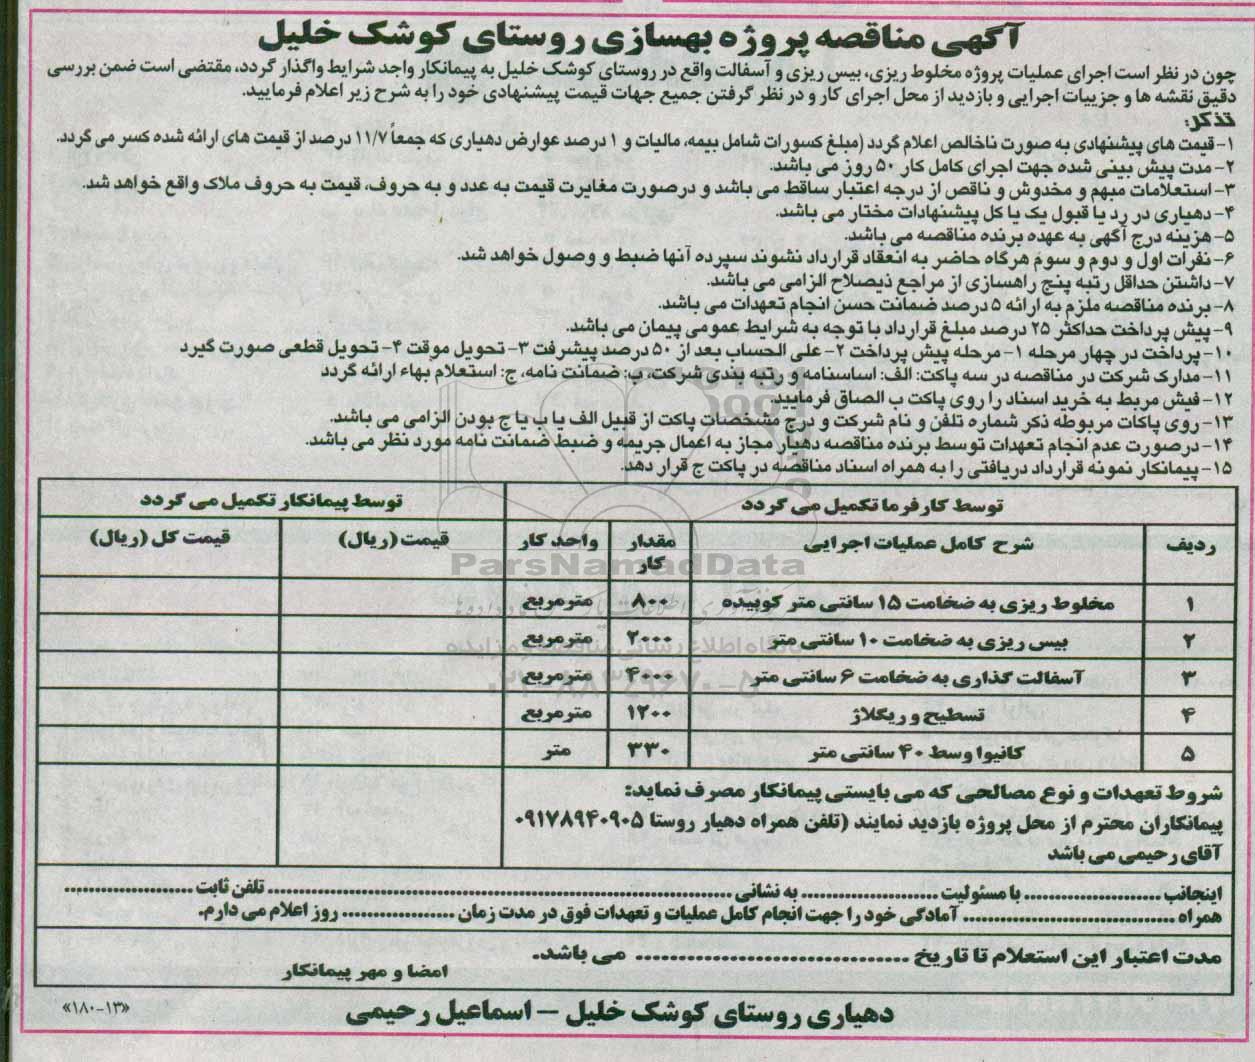 آگهی مناقصه پروژه بهسازی روستای کوشک خلیل
چون در نظر است اجرای عملیات پروژه مخلوط ریزی، بیس ریزی و آسفالت واقع در روستای کوشک خلیل به پیمانکار واجد شرایط واگذار گردد، مقتضی است ضمن بررسی
دقیق نقشه ها و جزییات اجرایی و بازدید از محل اجرای کار و در نظر گرفتن جمیع جهات قیمت پیشنهادی خود را به شرح زیر اعلام فرمایید.
تذکر:
۱- قیمت های پیشنهادی به صورت ناخالص اعلام گردد (مبلغ کسورات شامل بیمه، مالیات و ۱ درصد عوارض دهیاری که جمعاً ۱۱/۷ درصد از قیمت های ارائه شده کسر می گردد.
۲- مدت پیش بینی شده جهت اجرای کامل کار ۵۰ روز می باشد.
۳- استعلامات مبهم و مخدوش و ناقص از درجه اعتبار ساقط می باشد و درصورت مغایرت قیمت به عدد و به حروف، قیمت به حروف ملاک واقع خواهد شد.
۴- دهیاری در رد یا قبول یک یا کل پیشنهادات مختار می باشد.
۵- هزینه درج آگهی به عهده برنده مناقصه می باشد.
۶- نفرات اول و دوم و سوم هرگاه حاضر به انعقاد قرارداد نشوند سپرده آنها ضبط و وصول خواهد شد.
۷- داشتن حداقل رتبه پنج راهسازی از مراجع ذیصلاح الزامی می باشد.
۸- برنده مناقصه ملزم به ارائه ۵ درصد ضمانت حسن انجام تعهدات می باشد.
۹- پیش پرداخت حداکثر ۲۵ درصد مبلغ قرارداد با توجه به شرایط عمومی پیمان می باشد.
۱۰- پرداخت در چهار مرحله ۱- مرحله پیش پرداخت ۲- علی الحساب بعد از ۵۰ درصد پیشرفت ۳- تحویل موقت ۴- تحویل قطعی صورت گیرد
۱۱- مدارک شرکت در مناقصه در سه پاکت: الف: اساسنامه و رتبه بندی شرکت، ب: ضمانت نامه، ج: استعلام بهاء ارائه گردد
۱۲- فیش مربط به خرید اسناد را روی پاکت ب الصاق فرمایید.
۱۳- روی پاکات مربوطه ذکر شماره تلفن و نام شرکت و درج مشخصات پاکت از قبیل الف یا ب یا ج بودن الزامی می باشد.
۱۴- درصورت عدم انجام تعهدات توسط برنده مناقصه دهیار مجاز به اعمال جریمه و ضبط ضمانت نامه مورد نظر می باشد.
۱۵- پیمانکار نمونه قرارداد دریافتی را به همراه اسناد مناقصه در پاکت ج قرار دهد.
توسط کارفرما تکمیل می گردد توسط پیمانکار تکمیل می گردد
ردیف شرح کامل عملیات اجرایی مقدار کار واحد کار قیمت (ریال) قیمت کل (ریال)
۱ مخلوط ریزی به ضخامت ۱۵ سانتی متر کوبیده ۸۰۰ مترمربع
۲ بیس ریزی به ضخامت ۱۰ سانتی متر ۲۰۰۰ مترمربع
۳ آسفالت گذاری به ضخامت ۶ سانتی متر ۴۰۰۰ مترمربع
۴ تسطیح و ریگلاژ ۱۲۰۰ مترمربع
۵ کانیوا وسط ۴۰ سانتی متر ۳۳۰ متر
شروط تعهدات و نوع مصالحی که می بایستی پیمانکار مصرف نماید:
پیمانکاران محترم از محل پروژه بازدید نمایند (تلفن همراه دهیار روستا ۰۹۱۷۸۹۴۰۹۰۵
آقای رحیمی می باشد
اینجانب .................... با مسئولیت .................... به نشانی .................... تلفن ثابت ....................
همراه .................... آمادگی خود را جهت انجام کامل عملیات و تعهدات فوق در مدت زمان .................... روز اعلام می دارم.
مدت اعتبار این استعلام تا تاریخ .................... می باشد.
امضا و مهر پیمانکار
دهیاری روستای کوشک خلیل - اسماعیل رحیمی
«۱۸۰-۱۳»
ParsNamadData
پایگاه اطلاع رسانی مناقصه و مزایده
۰۲۱-۸۸۳۴۹۶۷۰-۵